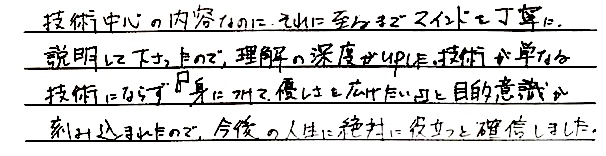 技術中心の内容なのに、それに至るまでマインドを丁寧に、
説明して下さったので、理解の深度がUPした。技術が単なる
技術にならず『身につけて、優しさを広げたい』と目的意識が
刻み込まれたので、今後の人生に絶対に役立つと確信しました。